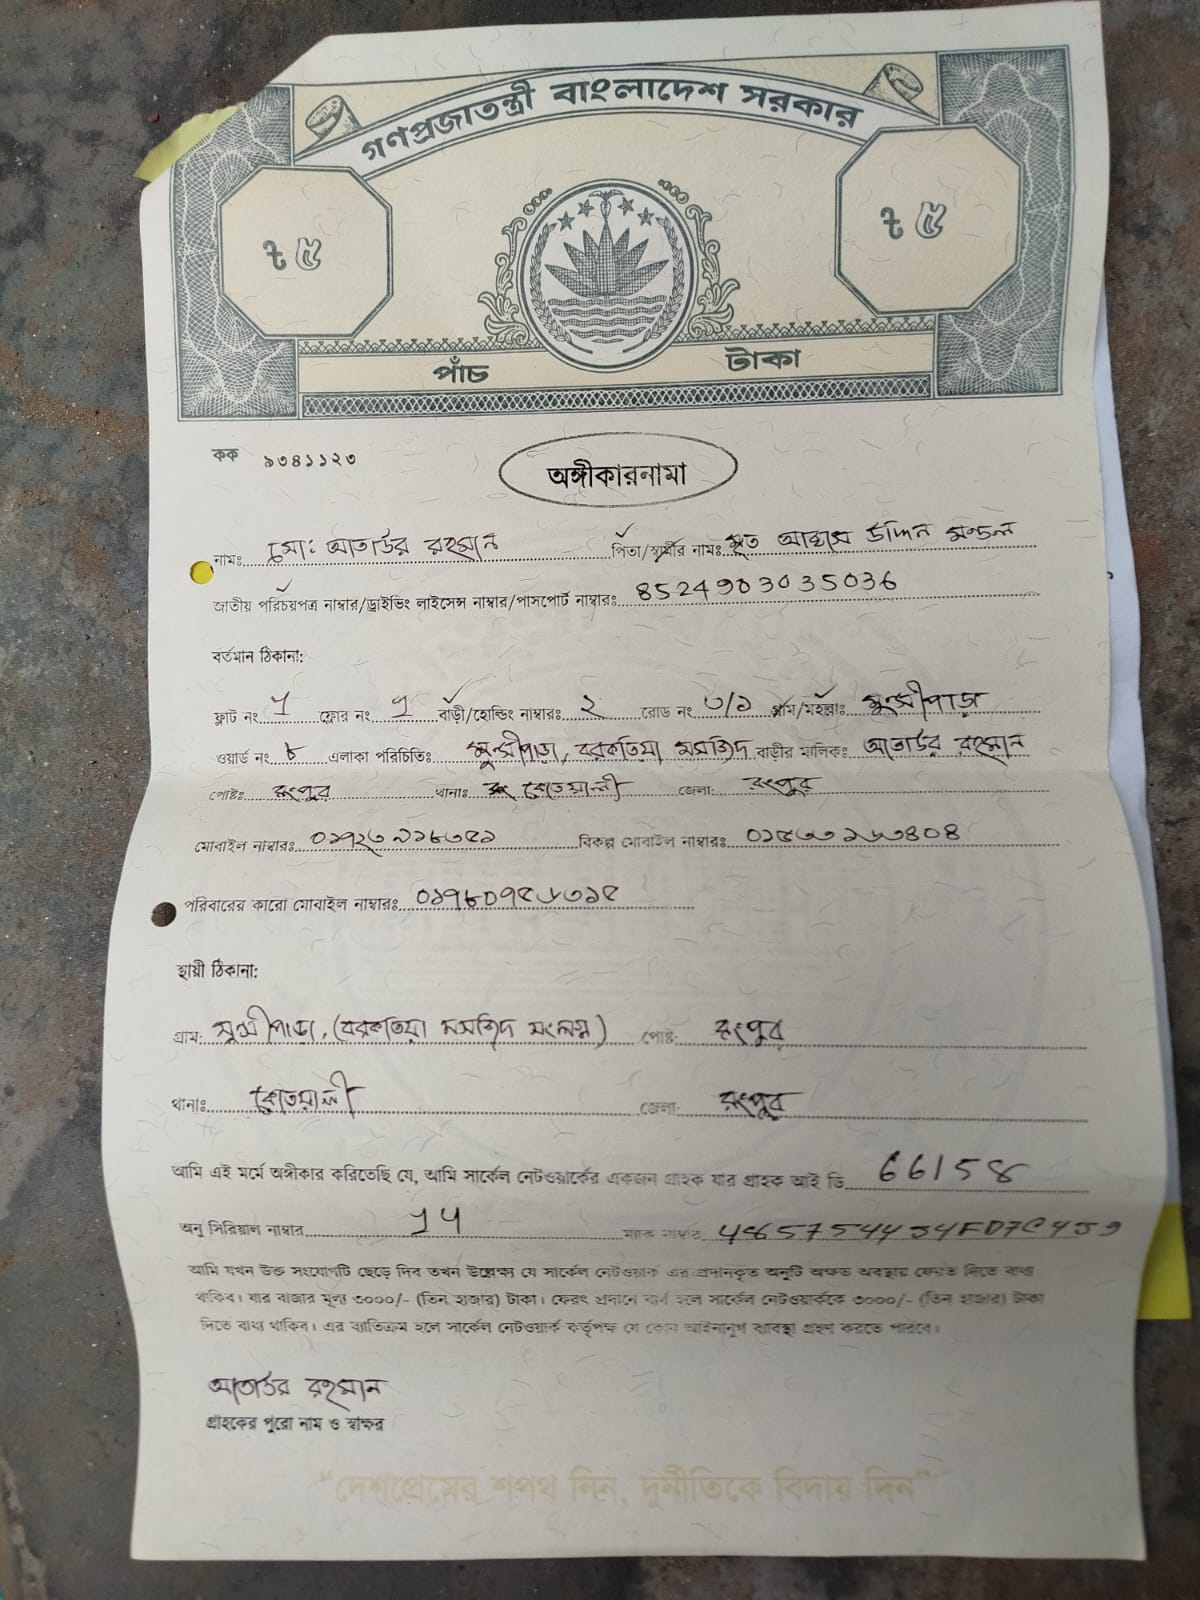 গণপ্রজাতন্ত্রী বাংলাদেশ সরকার
৳ ৫ ৳ ৫
পাঁচ টাকা
কক ৯৩৪১১২৩
অঙ্গীকারনামা
নামঃ মোঃ আতাউর রহমান পিতা/স্বামীর নামঃ মৃত আব্বাস উদ্দিন মন্ডল
জাতীয় পরিচয়পত্র নাম্বার/ড্রাইভিং লাইসেন্স নাম্বার/পাসপোর্ট নাম্বারঃ 8524903035036
বর্তমান ঠিকানা:
ফ্লাট নং ফ্লোর নং বাড়ী/হোল্ডিং নাম্বারঃ ২ রোড নং ৩/১ গ্রাম/মহল্লাঃ মুন্সীপাড়া
ওয়ার্ড নং ৮ এলাকা পরিচিতিঃ মুন্সীপাড়া, বরকতিয়া মসজিদ বাড়ীর মালিকঃ আতাউর রহমান
পোষ্টঃ রংপুর থানাঃ কোতয়ালী জেলাঃ রংপুর
মোবাইল নাম্বারঃ ০১৭২৩৯১৮৩৫১ বিকল্প মোবাইল নাম্বারঃ ০১৫৩৩১৬৩৪০৪
পরিবারের কারো মোবাইল নাম্বারঃ ০১৭৮০৭৫৬৩১৫
স্থায়ী ঠিকানা:
গ্রাম: মুন্সীপাড়া, (বরকতিয়া মসজিদ সংলগ্ন) পোষ্ট: রংপুর
থানাঃ কোতয়ালী জেলা: রংপুর
আমি এই মর্মে অঙ্গীকার করিতেছি যে, আমি সার্কেল নেটওয়ার্কের একজন গ্রাহক যার গ্রাহক আই ডি 66158
অনু সিরিয়াল নাম্বার ম্যাক নাম্বার
আমি যখন উক্ত সংযোগটি ছেড়ে দিব তখন উল্লেক্ষ্য যে সার্কেল নেটওয়ার্ক এর প্রদানকৃত অনুটি অক্ষত অবস্থায় ফেরত দিতে বাধ্য
থাকিব। যার বাজার মূল্য ৩০০০/- (তিন হাজার) টাকা। ফেরৎ প্রদানে ব্যর্থ হলে সার্কেল নেটওয়ার্ককে ৩০০০/- (তিন হাজার) টাকা
দিতে বাধ্য থাকিব। এর ব্যতিক্রম হলে সার্কেল নেটওয়ার্ক কর্তৃপক্ষ যে কোন আইনানুগ ব্যাবস্থা গ্রহণ করতে পারবে।
আতাউর রহমান
গ্রাহকের পুরো নাম ও স্বাক্ষর
“দেশপ্রেমের শপথ নিন, দুর্নীতিকে বিদায় দিন”